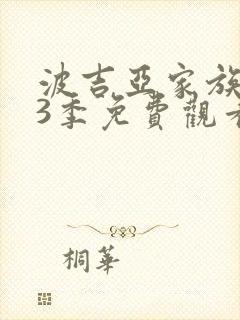 波吉亞家族
3季免費觀看
桐華